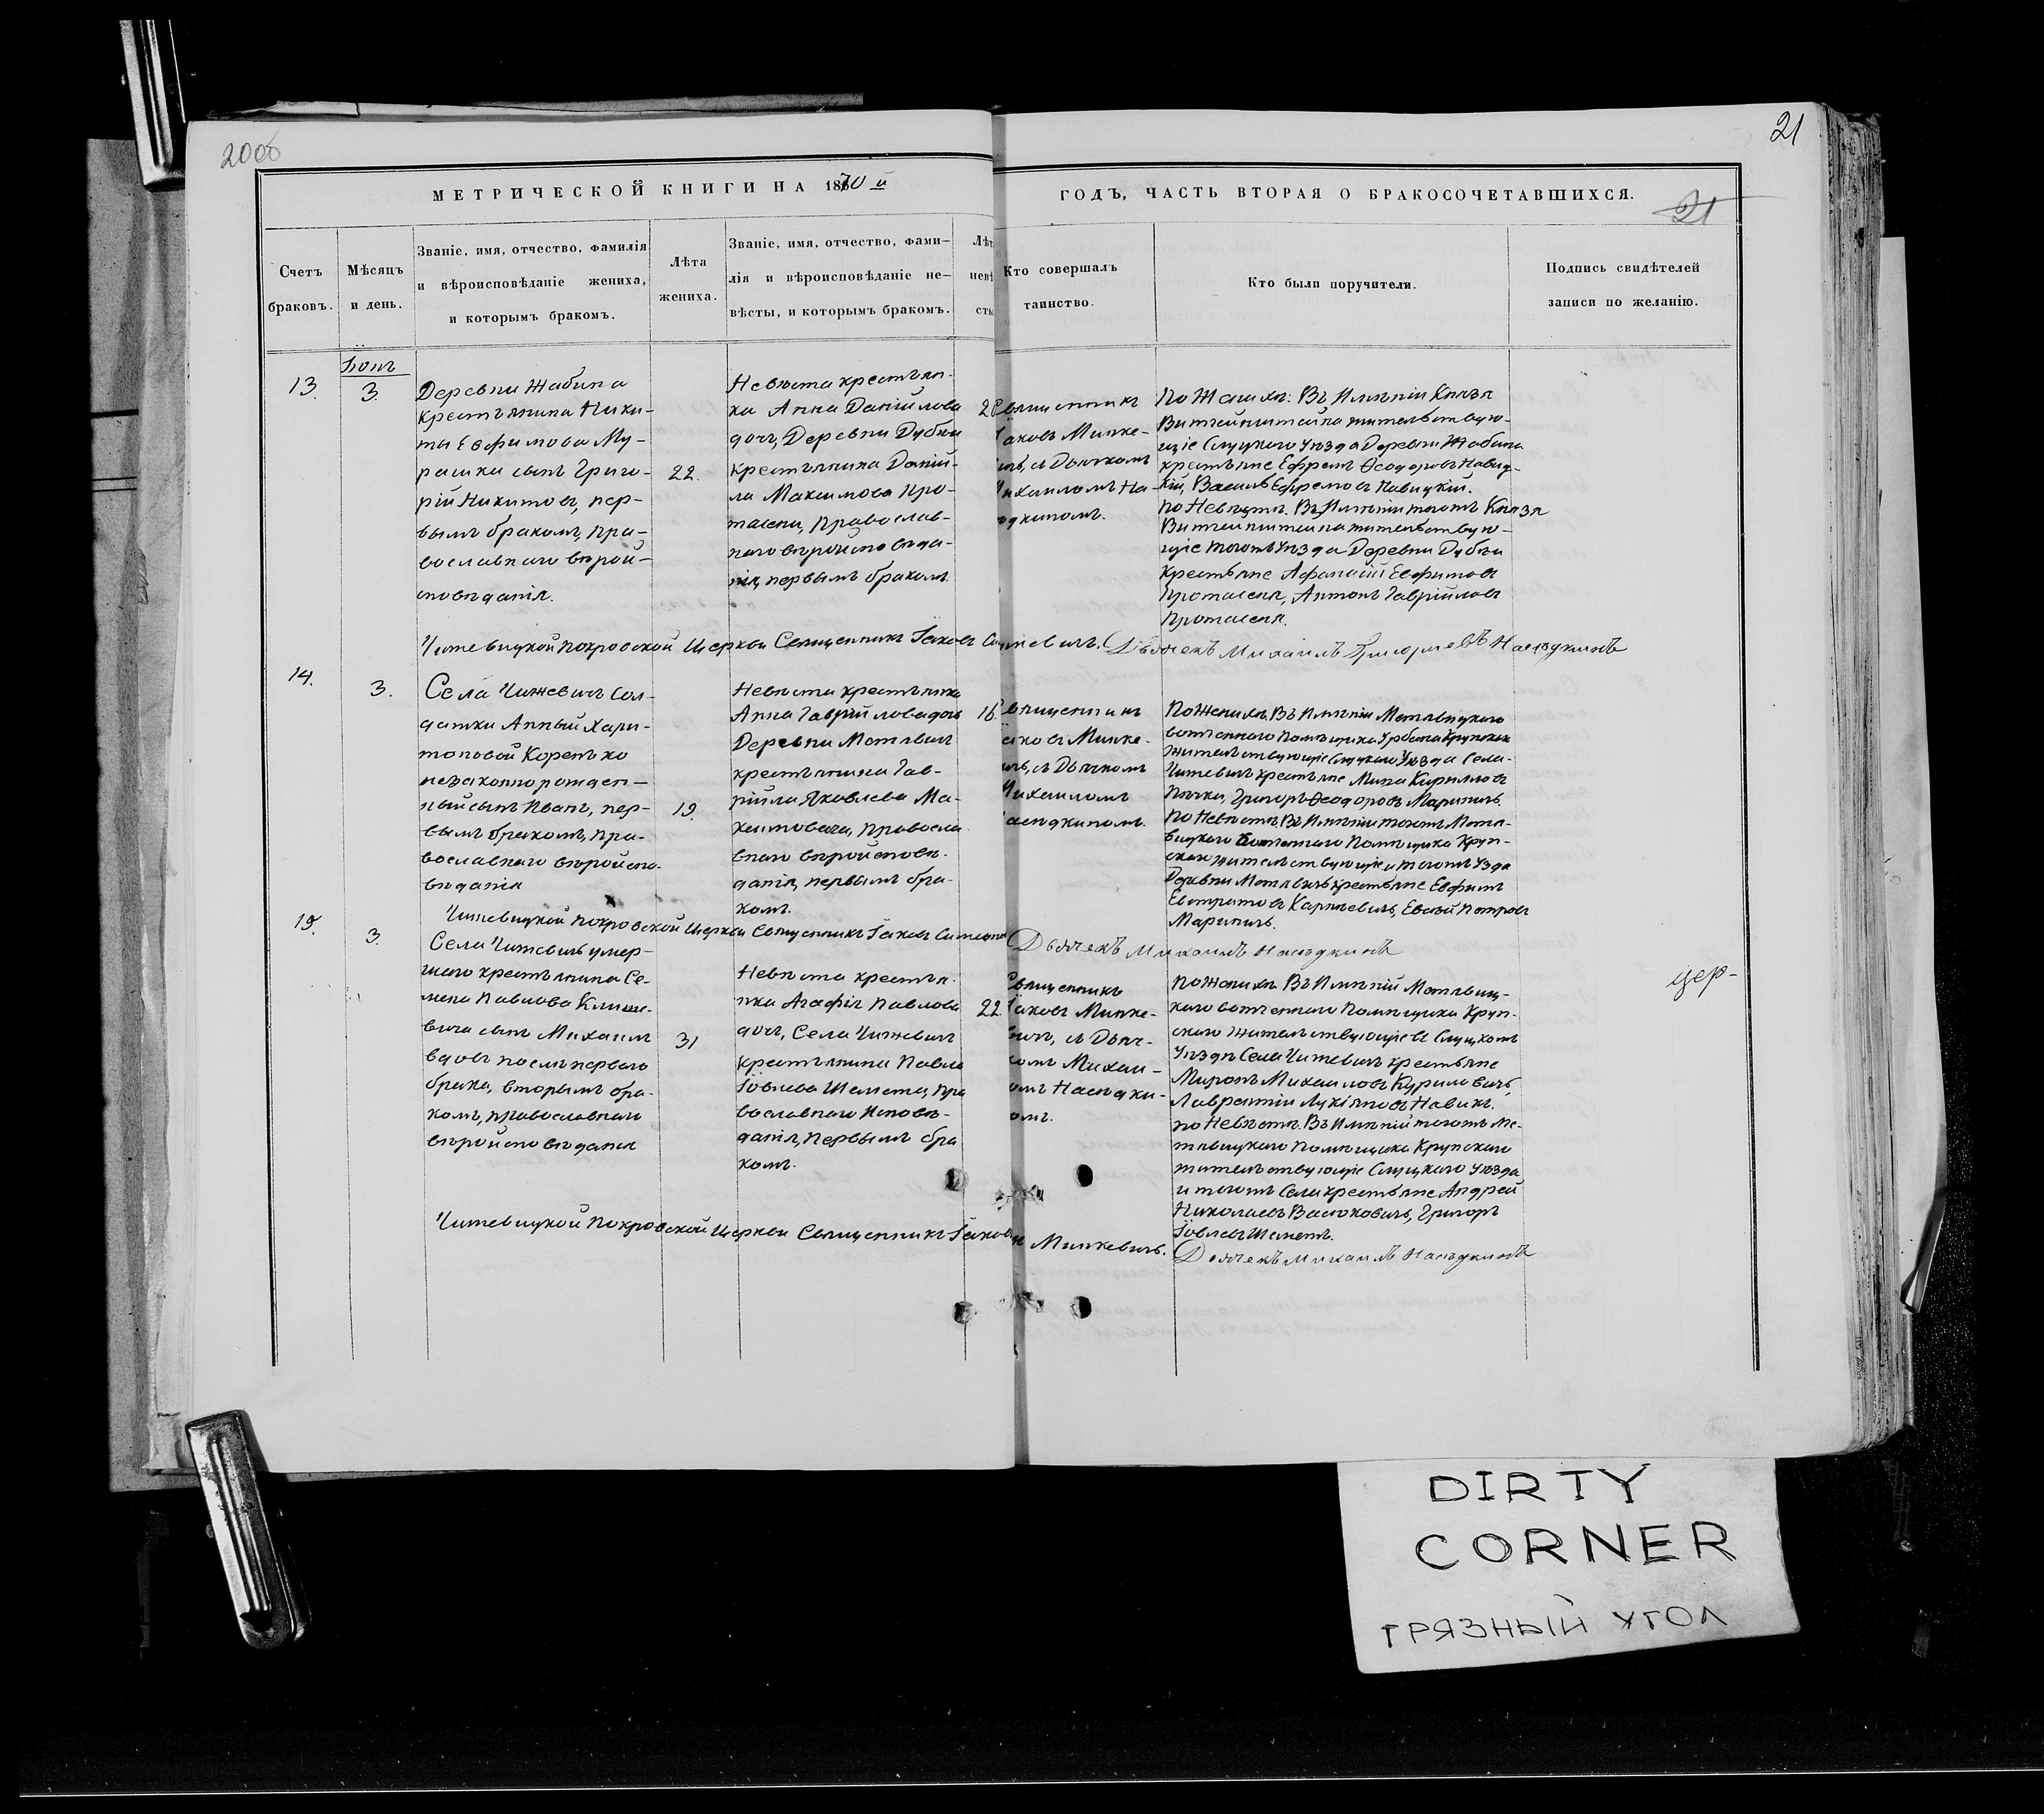 2006
21
МЕТРИЧЕСКОЙ КНИГИ НА 1870 й
ГОДЪ, ЧАСТЬ ВТОРАЯ О БРАКОСОЧЕТАВШИХСЯ.
21
Счетъ
браковъ.
Мѣсяцъ
и день.
Званіе, имя, отчество, фамилія
и вѣроисповѣданіе жениха,
и которымъ бракомъ.
Лѣта
жениха.
Званіе, имя, отчество, фами-
лія и вѣроисповѣданіе не-
вѣсты, и которымъ бракомъ.
Лѣт
невѣ
сты
Кто совершалъ
таинство.
Кто были поручители.
Подпись свидѣтелей
записи по желанію.
13.
3.
Деревни Жабина
крестьянина Ники-
ты Евфимова Му-
рашки сынъ Григо-
рій Никитовъ, пер-
вымъ бракомъ, пра-
вославнаго вѣрои-
сповѣданія.
22.
Невѣста крестьян-
ка Анна Даніилова
дочь, Деревни Дубеи
крестьянина Даніи-
ла Максимова Про-
тасени, православ-
наго вѣроисповѣда-
нія, первымъ бракомъ
вященникъ
аковъ Минке-
ичъ, съ Дьячкомъ
ихаиломъ На-
ѣдкиномъ.
По Женихѣ: Въ Имѣніи Князя
Витгенштейна жительствую-
щіе Слуцкаго Уѣзда Деревни Жабина
крестьяне Ефремъ Ѳеодоровъ Навиц-
кій, Василь Ефремовъ Навицкій.
по Невѣстѣ. Въ Имѣніи тогожъ Князя
Витгенштейна жительствую-
щіе тогожъ Уѣзда Деревни Дубеи
Крестьяне Афанасій Евфимовъ
Протасеня, Антонъ Гавріиловъ
Протасеня.
Чижевицкой Покровской Церкви Священникъ Іаковъ
Дьячекъ Михаилъ Григорьевъ Насѣдкинъ
14.
3.
Села Чижевичъ Сол-
датки Анны Хари-
тоновой Коренько
незаконнорожден-
ный сынъ Иванъ, пер-
вымъ бракомъ, пра-
вославнаго вѣроиспо-
вѣданія
19.
Невѣста крестьянка
Анна Гавріилова дочь
Деревни Метявичъ
крестьянина Гав-
ріила Яковлева Ма-
химовича, правосла-
внаго вѣроисповѣ-
данія, первымъ бра-
комъ.
16.
вященникъ
аковъ Минке-
ичъ, съ Дьячкомъ
ихаиломъ
асѣдкиномъ.
По Женихѣ. Въ Имѣніи Метявицкаго
вотченнаго Помѣщика Урбана Крупскаго
жительствующіе Слуцкаго Уѣзда Села
Чижевичъ крестьяне Мина Кирилловъ
Пячка, Григоръ Ѳеодоровъ Мариничъ.
По Невѣстѣ. Въ Имѣніи тогожъ Метя-
вицкаго вотченнаго Помѣщика Круп-
скаго жительствующіе тогожъ Уѣзда
Деревни Метявичъ крестьяне Евфимъ
Евстратовъ Карпѣевичъ, Евсѣй Петровъ
Мариничъ.
Чижевицкой Покровской Церкви Священникъ Іаковъ
Дьячекъ Михаилъ Насѣдкинъ
15.
3.
Села Чижевичъ умер-
шаго крестьянина Се-
мена Павлова Климе-
вича сынъ Михаилъ
вдовъ послѣ перваго
брака, вторымъ бра-
комъ, православнаго
вѣроисповѣданія
31
Невѣста крестья-
нка Агафія Павлова
дочь, Села Чижевичъ
крестьянина Павла
Іовлева Шемета, пра
вославнаго Исповѣ-
данія, первымъ бра
комъ.
22.
Священникъ
Іаковъ Минке-
вичъ, съ Дьяч-
комъ Михаи-
омъ Насѣдки-
омъ.
По Женихѣ. Въ Имѣніи Метявиц-
каго вотченнаго Помѣщика Круп-
скаго жительствующіе въ Слуцкомъ
Уѣздѣ Села Чижевичъ крестьяне
Миронъ Михаиловъ Куриловичъ,
Лаврентій Лукіановъ Навикъ.
по Невѣстѣ. Въ Имѣніи тогожъ Ме-
тявицкаго Помѣщика Крупскаго
жительствующіе Слуцкаго Уѣзда
и тогожъ Села крестьяне Андрей
Николаевъ Васюковичъ, Григоръ
Іовлевъ Шеметъ.
цер-
Чижевицкой Покровской Церкви Священникъ Іаковъ Минкевичъ.
Дьячекъ Михаилъ Насѣдкинъ
DIRTY
CORNER
ГРЯЗНЫЙ УГОЛ